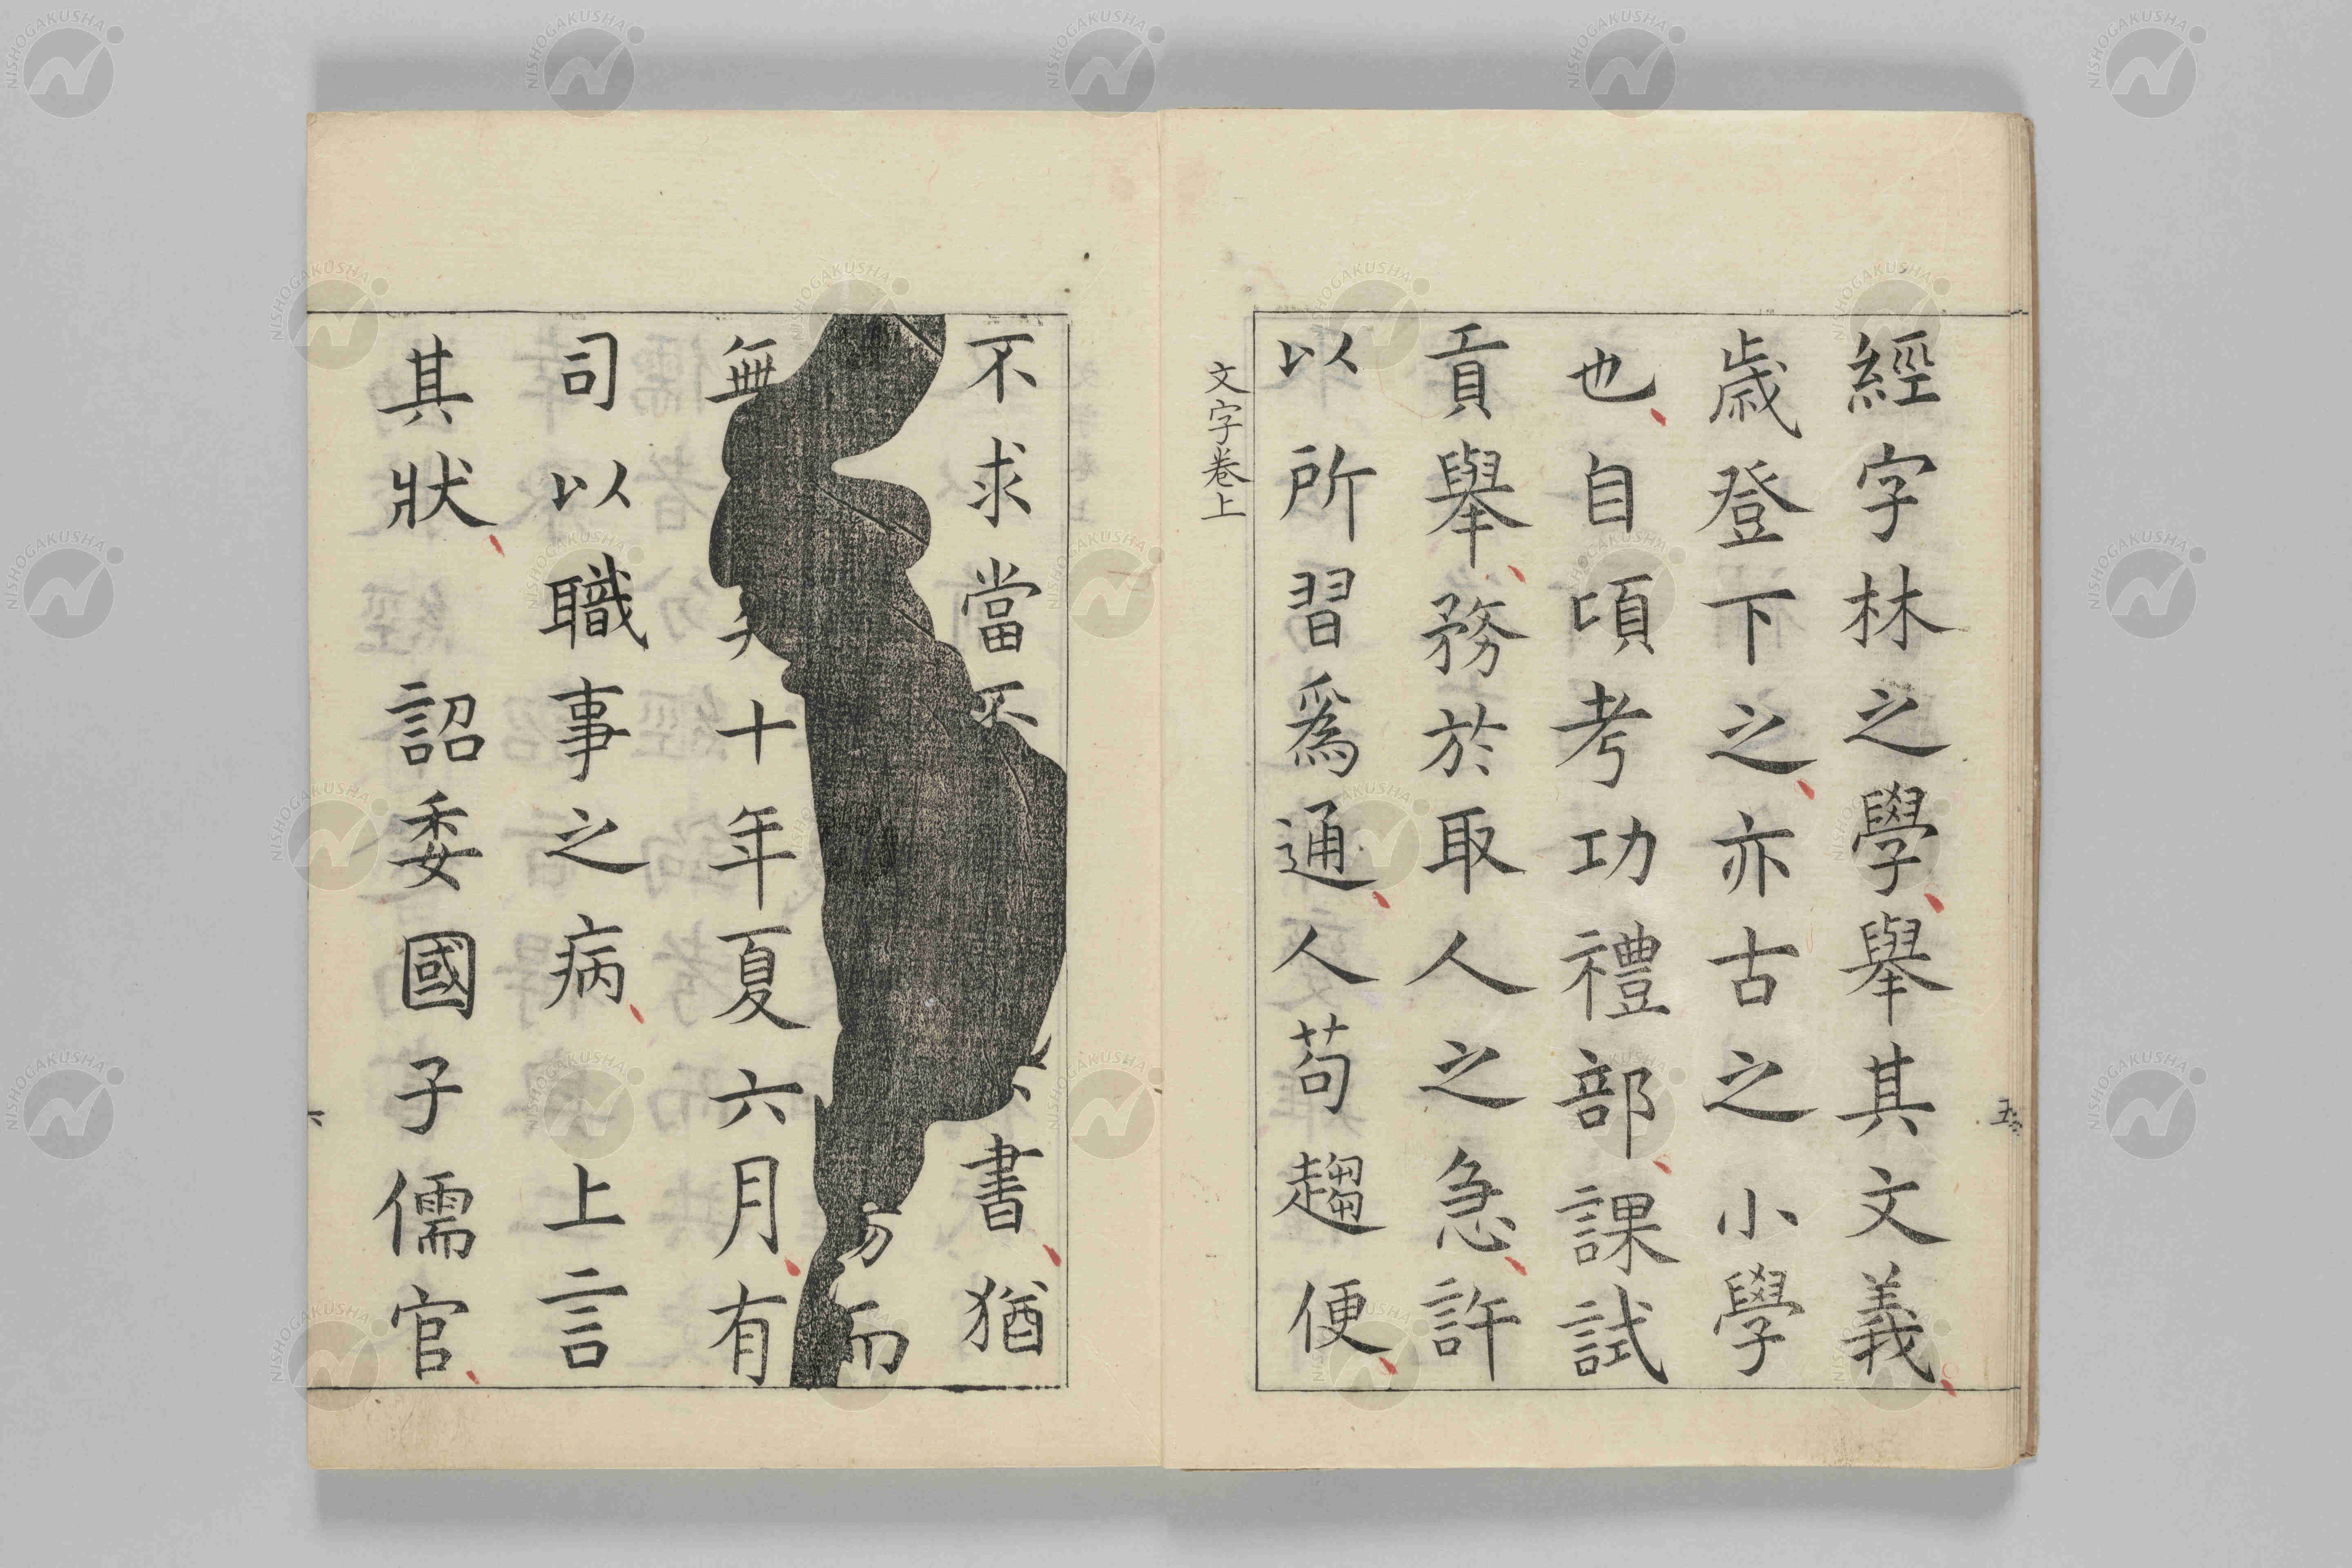 經字林之學舉其文義
歳登下之亦古之小學
也自頃考功禮部課試
貢舉務於取人之急許
以所習爲通人苟趨便
文字卷上
不求當不書猶
而
無十年夏六月有
司以職事之病上言
其狀詔委國子儒官
五
NISHOGAKUSHA